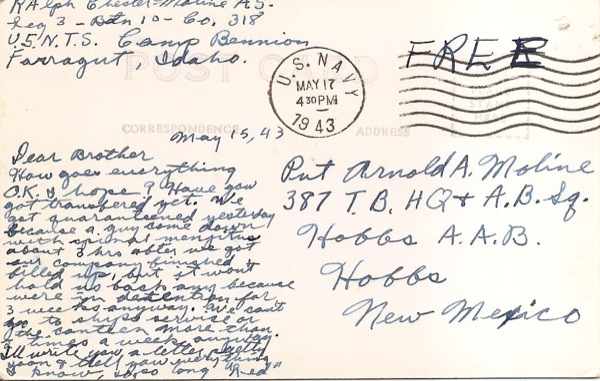 Ralph Chester Moline A.S.
Reg 3 - Btn 10 - Co. 318
U.S.N.T.S. Camp Bennion
Farragut, Idaho.
POST CARD
U.S. NAVY
MAY 17
4 30 PM
1943
FREE
CORRESPONDENCE
ADDRESS
May 15, 43
Dear Brother
How goes everything
O.K. I hope? Have you
got transfered yet. We
got quaranteened yesterday
because a guy come down
with spinal menfitus
about 3 hrs after we got
our company finished
filled up, but it wont
hold us back any because
were in detention for
3 weeks anyway. We can't
go to ships service or
the canteen more than
times a week anyway.
I'll write you a letter pretty
soon & tell you everything
I know, so, so long "Red"
Pvt Arnold A. Moline
387 T.B. HQ & A.B. Sq.
Hobbs A.A.B.
Hobbs
New Mexico